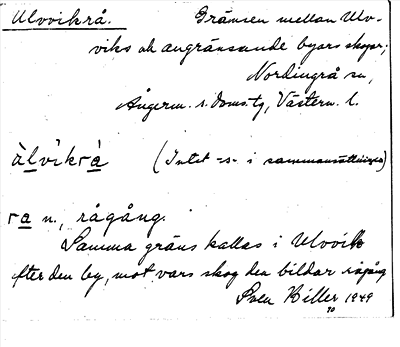 Ulvvikrå. Gränsen mellan Ulv-
viks ok angränsande byars skogar;
Nordingrå sn,
Ångerm. s. doms.tg, Västern. l.
àlvìkrà (Intet -s- i sammansättningen)
ra n., rågång.
Samma gräns kallas i Ulvvik
efter den by, mot vars skog den bildar rågång
Sven Biller 1949